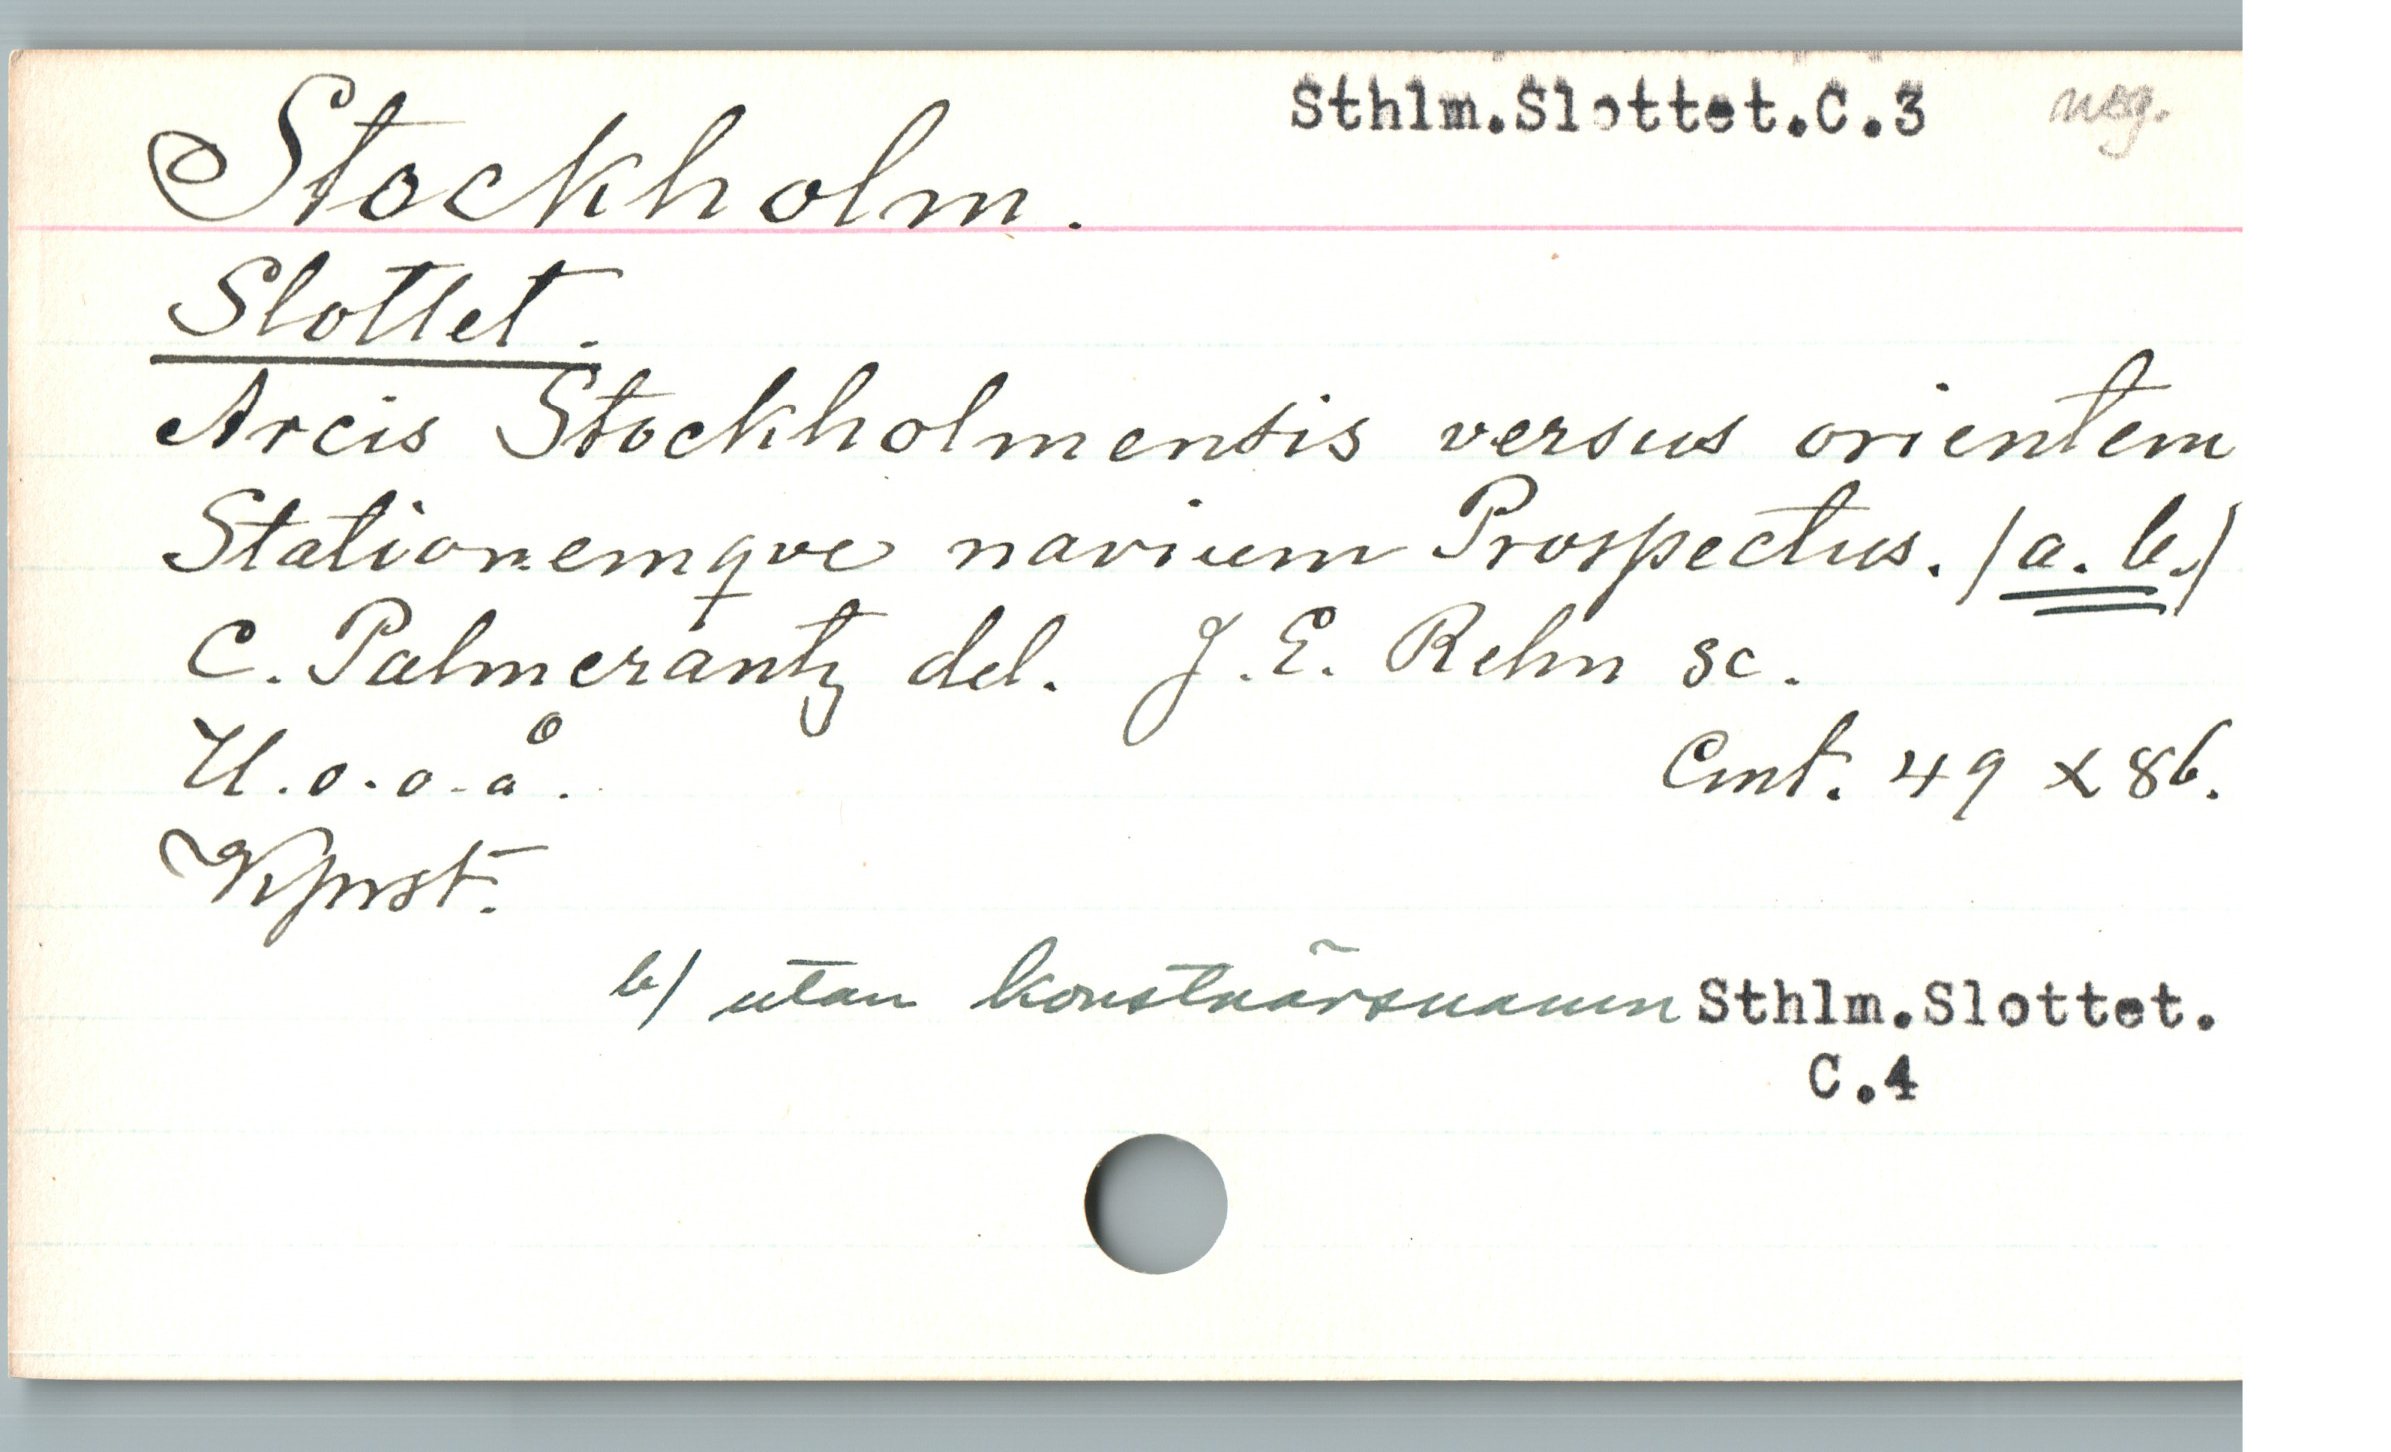 Sthlm.Slottet.C.3 neg.
Stockholm.
Slottet.
Arcis Stockholmensis versus orientem
Stationemqve navium Prospectus. (a. b.)
C. Palmerantz del. J. E. Rehn sc.
U.o.o.å. Cmt. 49 x 86.
Kprst.
b) utan konstnärsnamn Sthlm.Slottet.
C.4